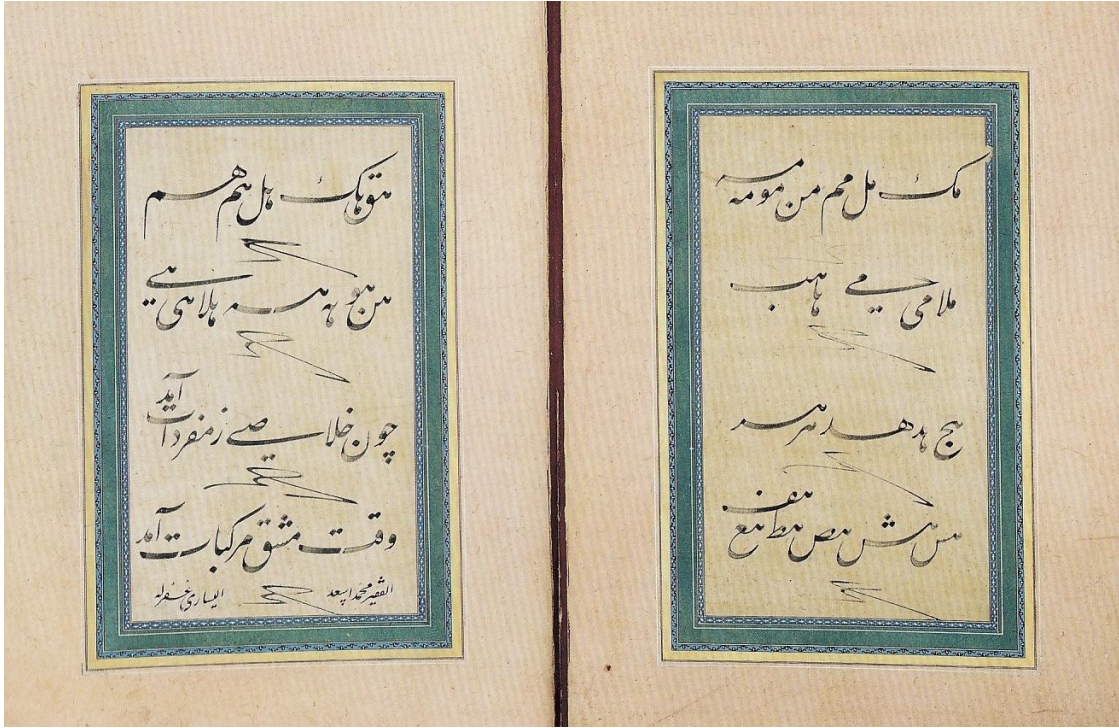 مک مل مم من مو مه مـه
ملا می مے ها هب
هج هد هـد هر هـر
هس هش هص هط هع هف
هق هک هل هم هـم
هن هو هه هـه هلا هی هے
چون خلاصی ز مفردات آمد
وقت مشق مرکبات آمد
الفقیر محمد اسعد الیساری غفر له